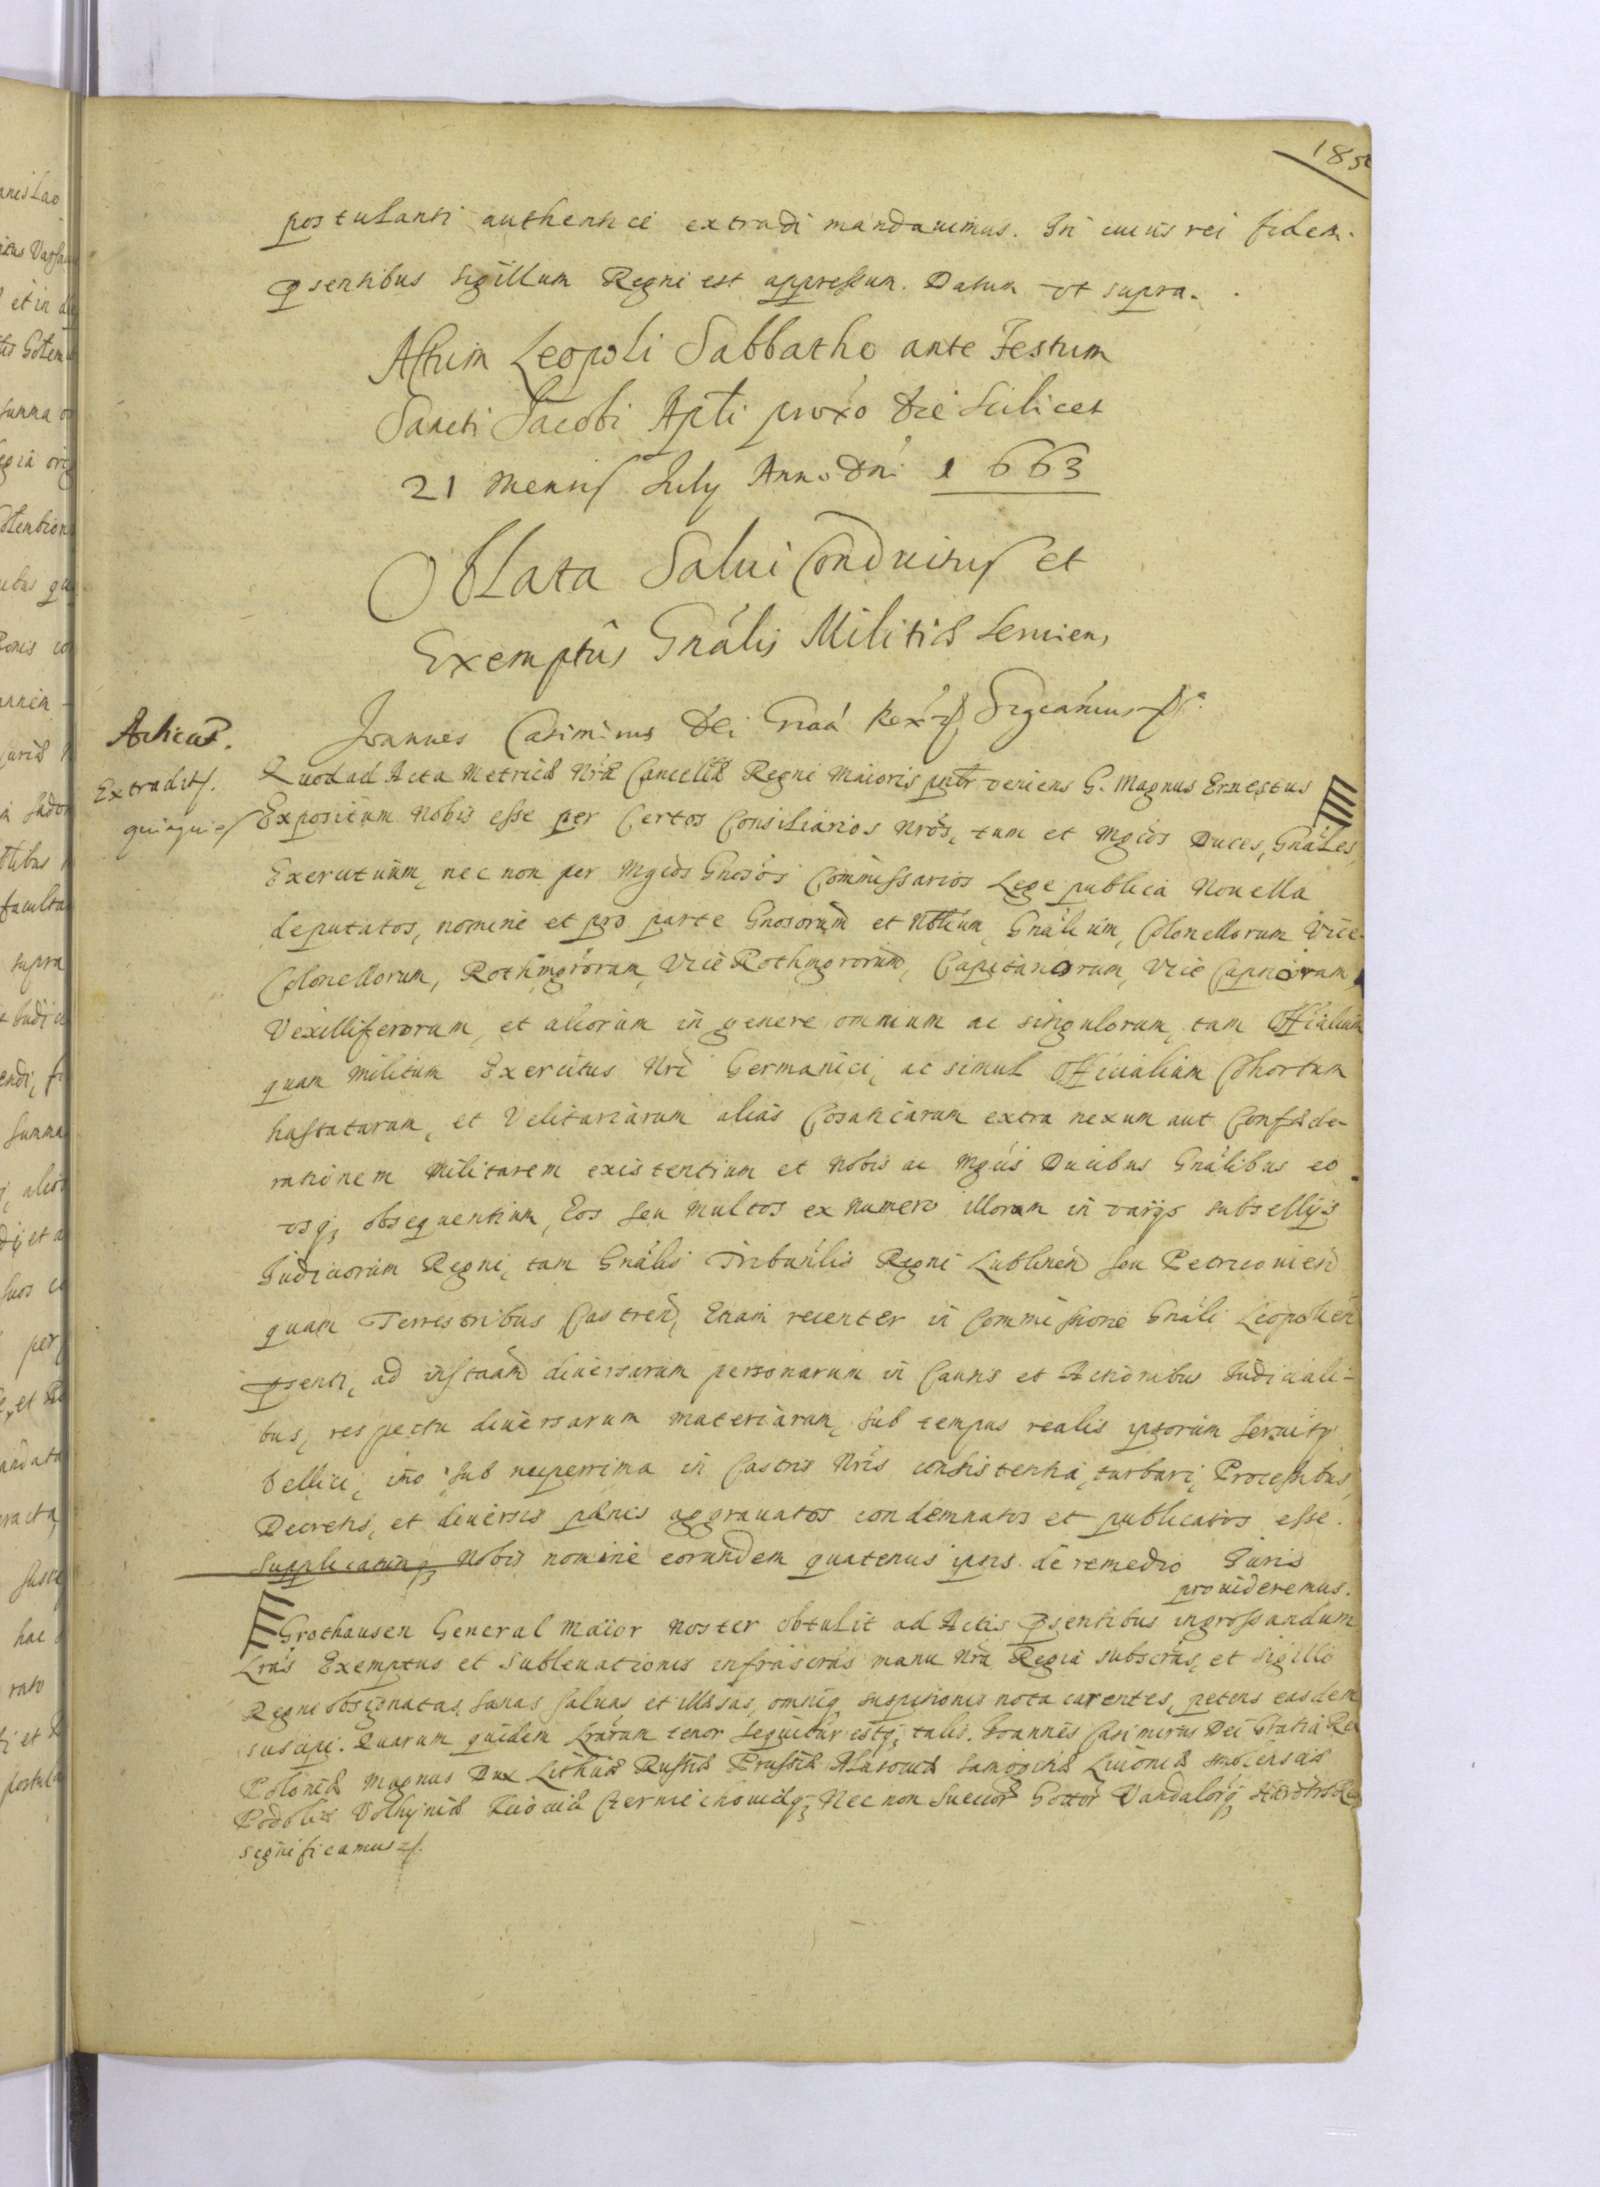 185
postulanti authentice extradi mandavimus. In cuius rei fidem
pṙsentibus sigillum Regni est appressum. Datum vt supra.
Actum Leopoli Sabbatho ante Festum
Sancti Jacobi Apli proxo die scilicet
21 mensis July Anno Dni 1663
Oblata Salui Conductus et
Exemptus Gnalis Militiæ seruien,
Joannes Casimirus Dei Graa Rex Significamus
Quod ad Acta Metricæ Nræ Cancellæ Regni Maioris psntr veniens G. Magnus Ernestus
Extradit.
quinquies
Expositum Nobis esse per Certos Consiliarios Nros, tum et Mgcos Duces, Gnales
Exercituum, nec non per Mgcos Gnosos Commissarios Lege publica Nouella
deputatos, nomine et pro parte Gnosorum et Nblium, Gnalium, Colonellorum Vice
Colonellorum, Rothmgrorum, Vice Rothmgrorum, Capitanorum, Vice Capneorum,
Vexilliferorum, et aliorum in genere omnium ac singulorum, tam Officialium
quam militum Exercitus Nri Germanici, ac simul Officialium Cohortum
hastatarum, et Velitariarum alias Cosacicarum extra nexum aut Confæde-
rationem Militarem existentium et Nobis ac Mgcis Ducibus Gnalibus eo
vsq; obsequentium, Eos seu multos ex numero illorum in varijs subsellijs
Iudiciorum Regni, tam Gnalis Tribunlis Regni Lublinen seu Petricouien
quam Terrestribus Castren, Etiam recenter in Commissione Gnali Leopolien
pṙsenti, ad instaam diuersarum personarum in Causis et Actionibus Iudiciali-
bus, respectu diuersarum materiarum, sub tempus realis ipsorum seruity
bellici, imo sub nuperrima in Castris Nris consistentia, turbari, Processibus,
Decretis, et diuersis pænis aggrauatos condemnatos et publicatos esse.
Supplicatumq; Nobis nomine eorundem quatenus ipsis de remedio Iuris
prouideremus.
Grothausen General Maior Noster obtulit ad Actis pṙsentibus ingrossandum
Lras Exemptus et Subleuationis infrascras manu Nra Regia subscras, et sigillo
Regni obsignatas, sanas saluas et illæsas, omniq; suspicionis nota carentes, petens easdem
suscipi. Quarum quidem Lrarum tenor sequitur estq; talis. Joannes Casimirus Dei Gratia Rex
Poloniæ Magnus Dux Lithuæ Russiæ Prussiæ Masouiæ Samogitiæ Liuoniæ Smolensciæ
Podoliæ Volhyniæ Kiiouiæ Czerniechouiæq; Nec non Suecor Gottor Vandalorq; Hærdtrs Rex
significamus